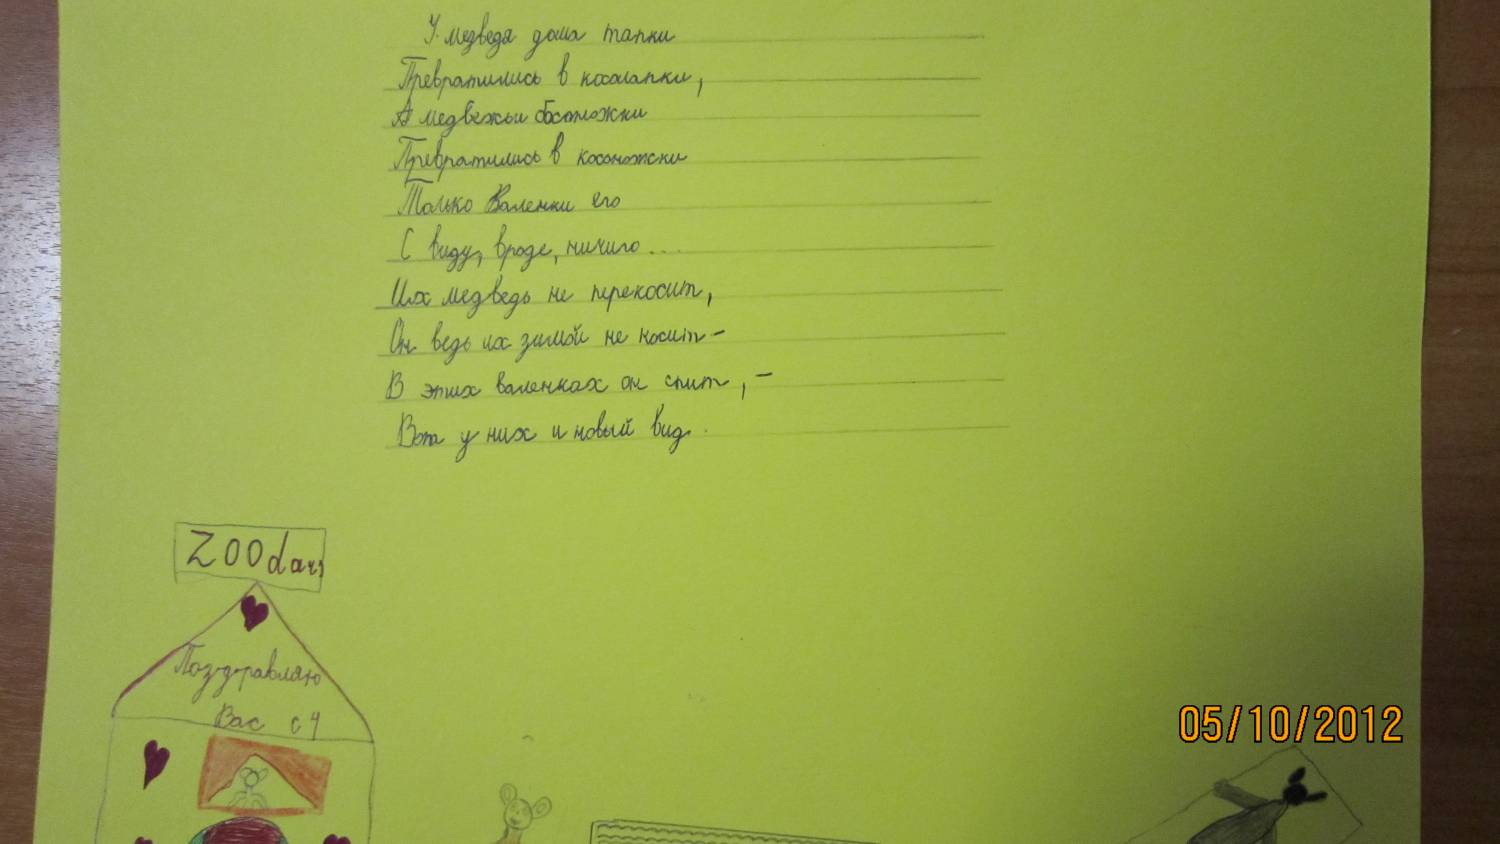 У медведя дома тапки
Превратились в косолапки,
А медвежьи босоножки
Превратились в косоножки
Только Валенки его
С виду, вроде, ничиго...
Их медведь не перекосит,
Он ведь их зимой не носит -
В этих валенках он спит, -
Вот у них и новый вид.
ZOOdays
Поздравляю
Вас с 4
05/10/2012